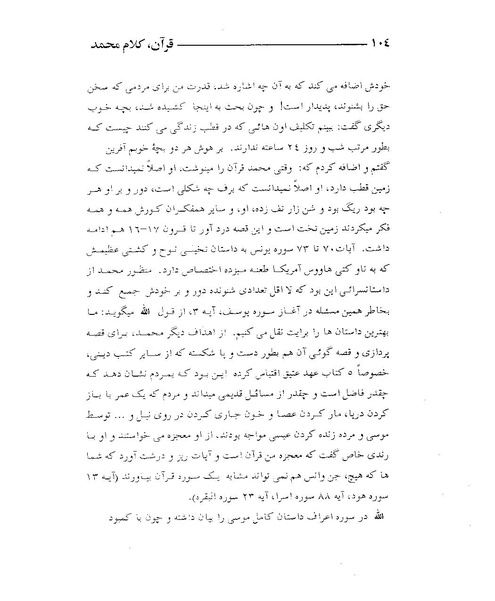 ۱۰٤ ــــــــــــــــــــ قرآن، کلام محمد
خودش اضافه می کند که به آن چه اشاره شد، قدرت من برای مردمی که سخن
حق را بشنوند، پدیدار است! و چون بحث به اینجا کشیده شد، بچه خوب
دیگری گفت: ببینم تکلیف اون هائی که در قطب زندگی می کنند چیست که
بطور مرتب شب و روز ۲٤ ساعته ندارند. بر هوش هر دو بچهٔ خوبم آفرین
گفتم و اضافه کردم که: وقتی محمد قرآن را مینوشت، او اصلاً نمیدانست که
زمین قطب دارد، او اصلاً نمیدانست که برف چه شکلی است، دور و بر او هر
چه بود ریگ بود و شن زار تف زده، او، و سایر همفکران کورش همه و همه
فکر میکردند زمین تخت است و این قصه درد آور تا قرون ۱۷-۱٦ هم ادامه
داشت. آیات ۷۰ تا ۷۳ سوره یونس به داستان تخیلی نوح و کشتی عظیمش
که به ناو کتی هاووس آمریکا طعنه میزده اختصاص دارد. منظور محمد از
داستانسرائی این بود که لااقل تعدادی شنونده دور و بر خودش جمع کند و
بخاطر همین مسئله در آغاز سوره یوسف، آیه ۳، از قول الله میگوید: ما
بهترین داستان ها را برایت نقل می کنیم. از اهداف دیگر محمد، برای قصه
پردازی و قصه گوئی آن هم بطور دست و پا شکسته که از سایر کتب دینی،
خصوصاً ٥ کتاب عهد عتیق اقتباس کرده این بود که بمردم نشان دهد که
چقدر فاضل است و چقدر از مسائل قدیمی میداند و مردم که یک عمر با باز
کردن دریا، مار کردن عصا و خون جاری کردن در روی نیل و ... توسط
موسی و مرده زنده کردن عیسی مواجه بودند، از او معجزه می خواستند و او با
رندی خاص گفت که معجزه من قرآن است و آیات ریز و درشت آورد که شما
ها که هیچ، جن وانس هم نمی تواند مشابه یک سوره قرآن بیاورند (آیه ۱۳
سوره هود، آیه ۸۸ سوره اسرا، آیه ۲۳ سوره البقره).
الله در سوره اعراف داستان کامل موسی را بیان داشته و چون با کمبود